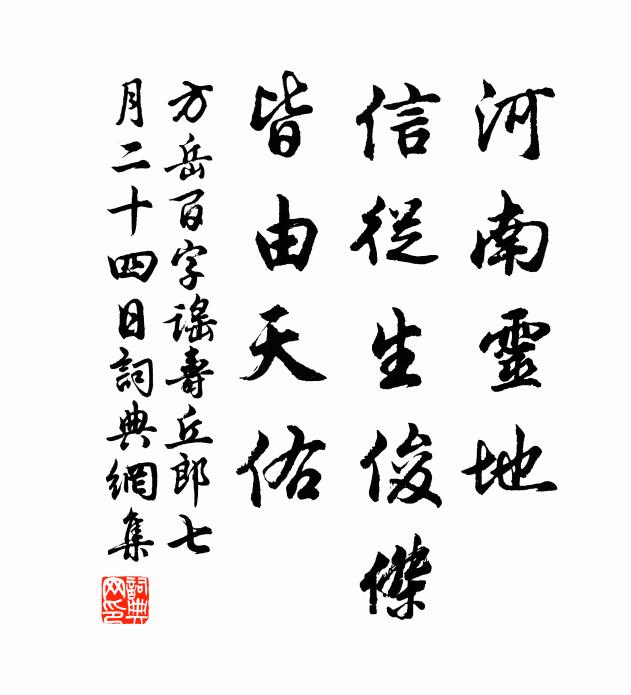 河南靈地
信從生俊傑
皆由天佑
方岳百字謠壽丘郎七
月二十四日詞典網集
詞典
网印